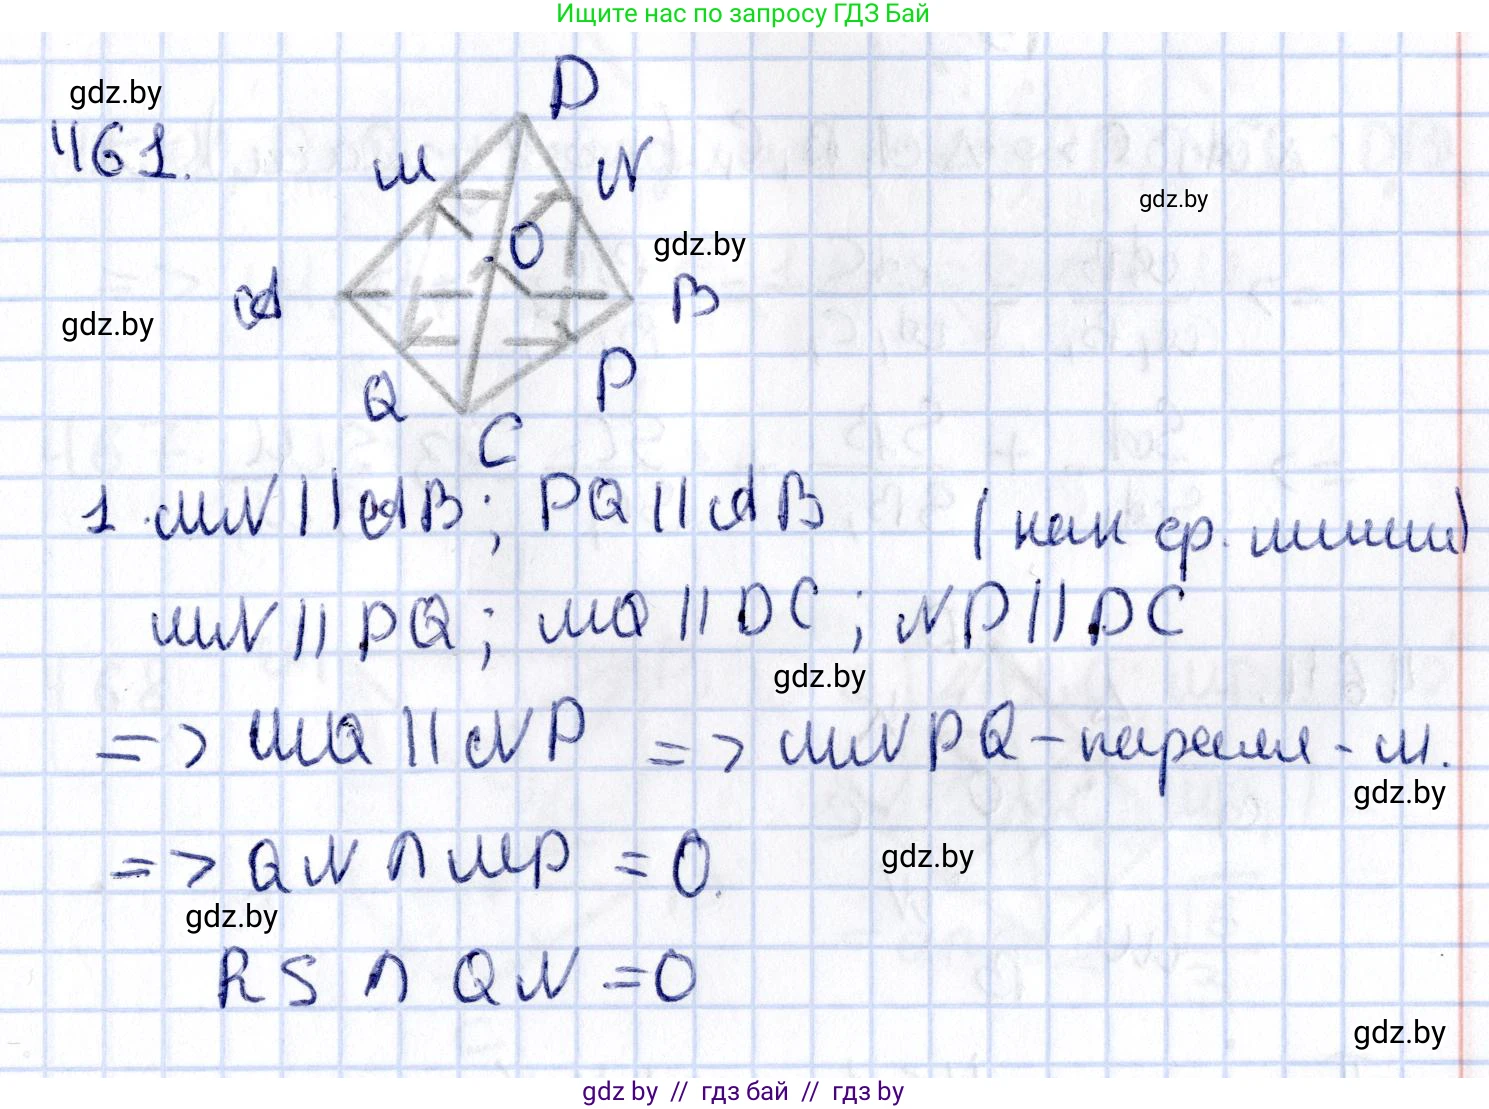 Ищите нас по запросу ГДЗ Бай
gdz.by
461.
D
M
N
gdz.by
O
gdz.by
A
B
gdz.by
Q
P
C
1. MN || AB; PQ || AB (как ср. линии)
MN || PQ; MQ || DC; NP || DC
gdz.by
=> MQ || NP => MNPQ - паралл-м.
gdz.by
=> QN ∩ MP = O.
gdz.by
gdz.by
RS ∩ QN = O
gdz.by
gdz by // гдз бай // гдз by